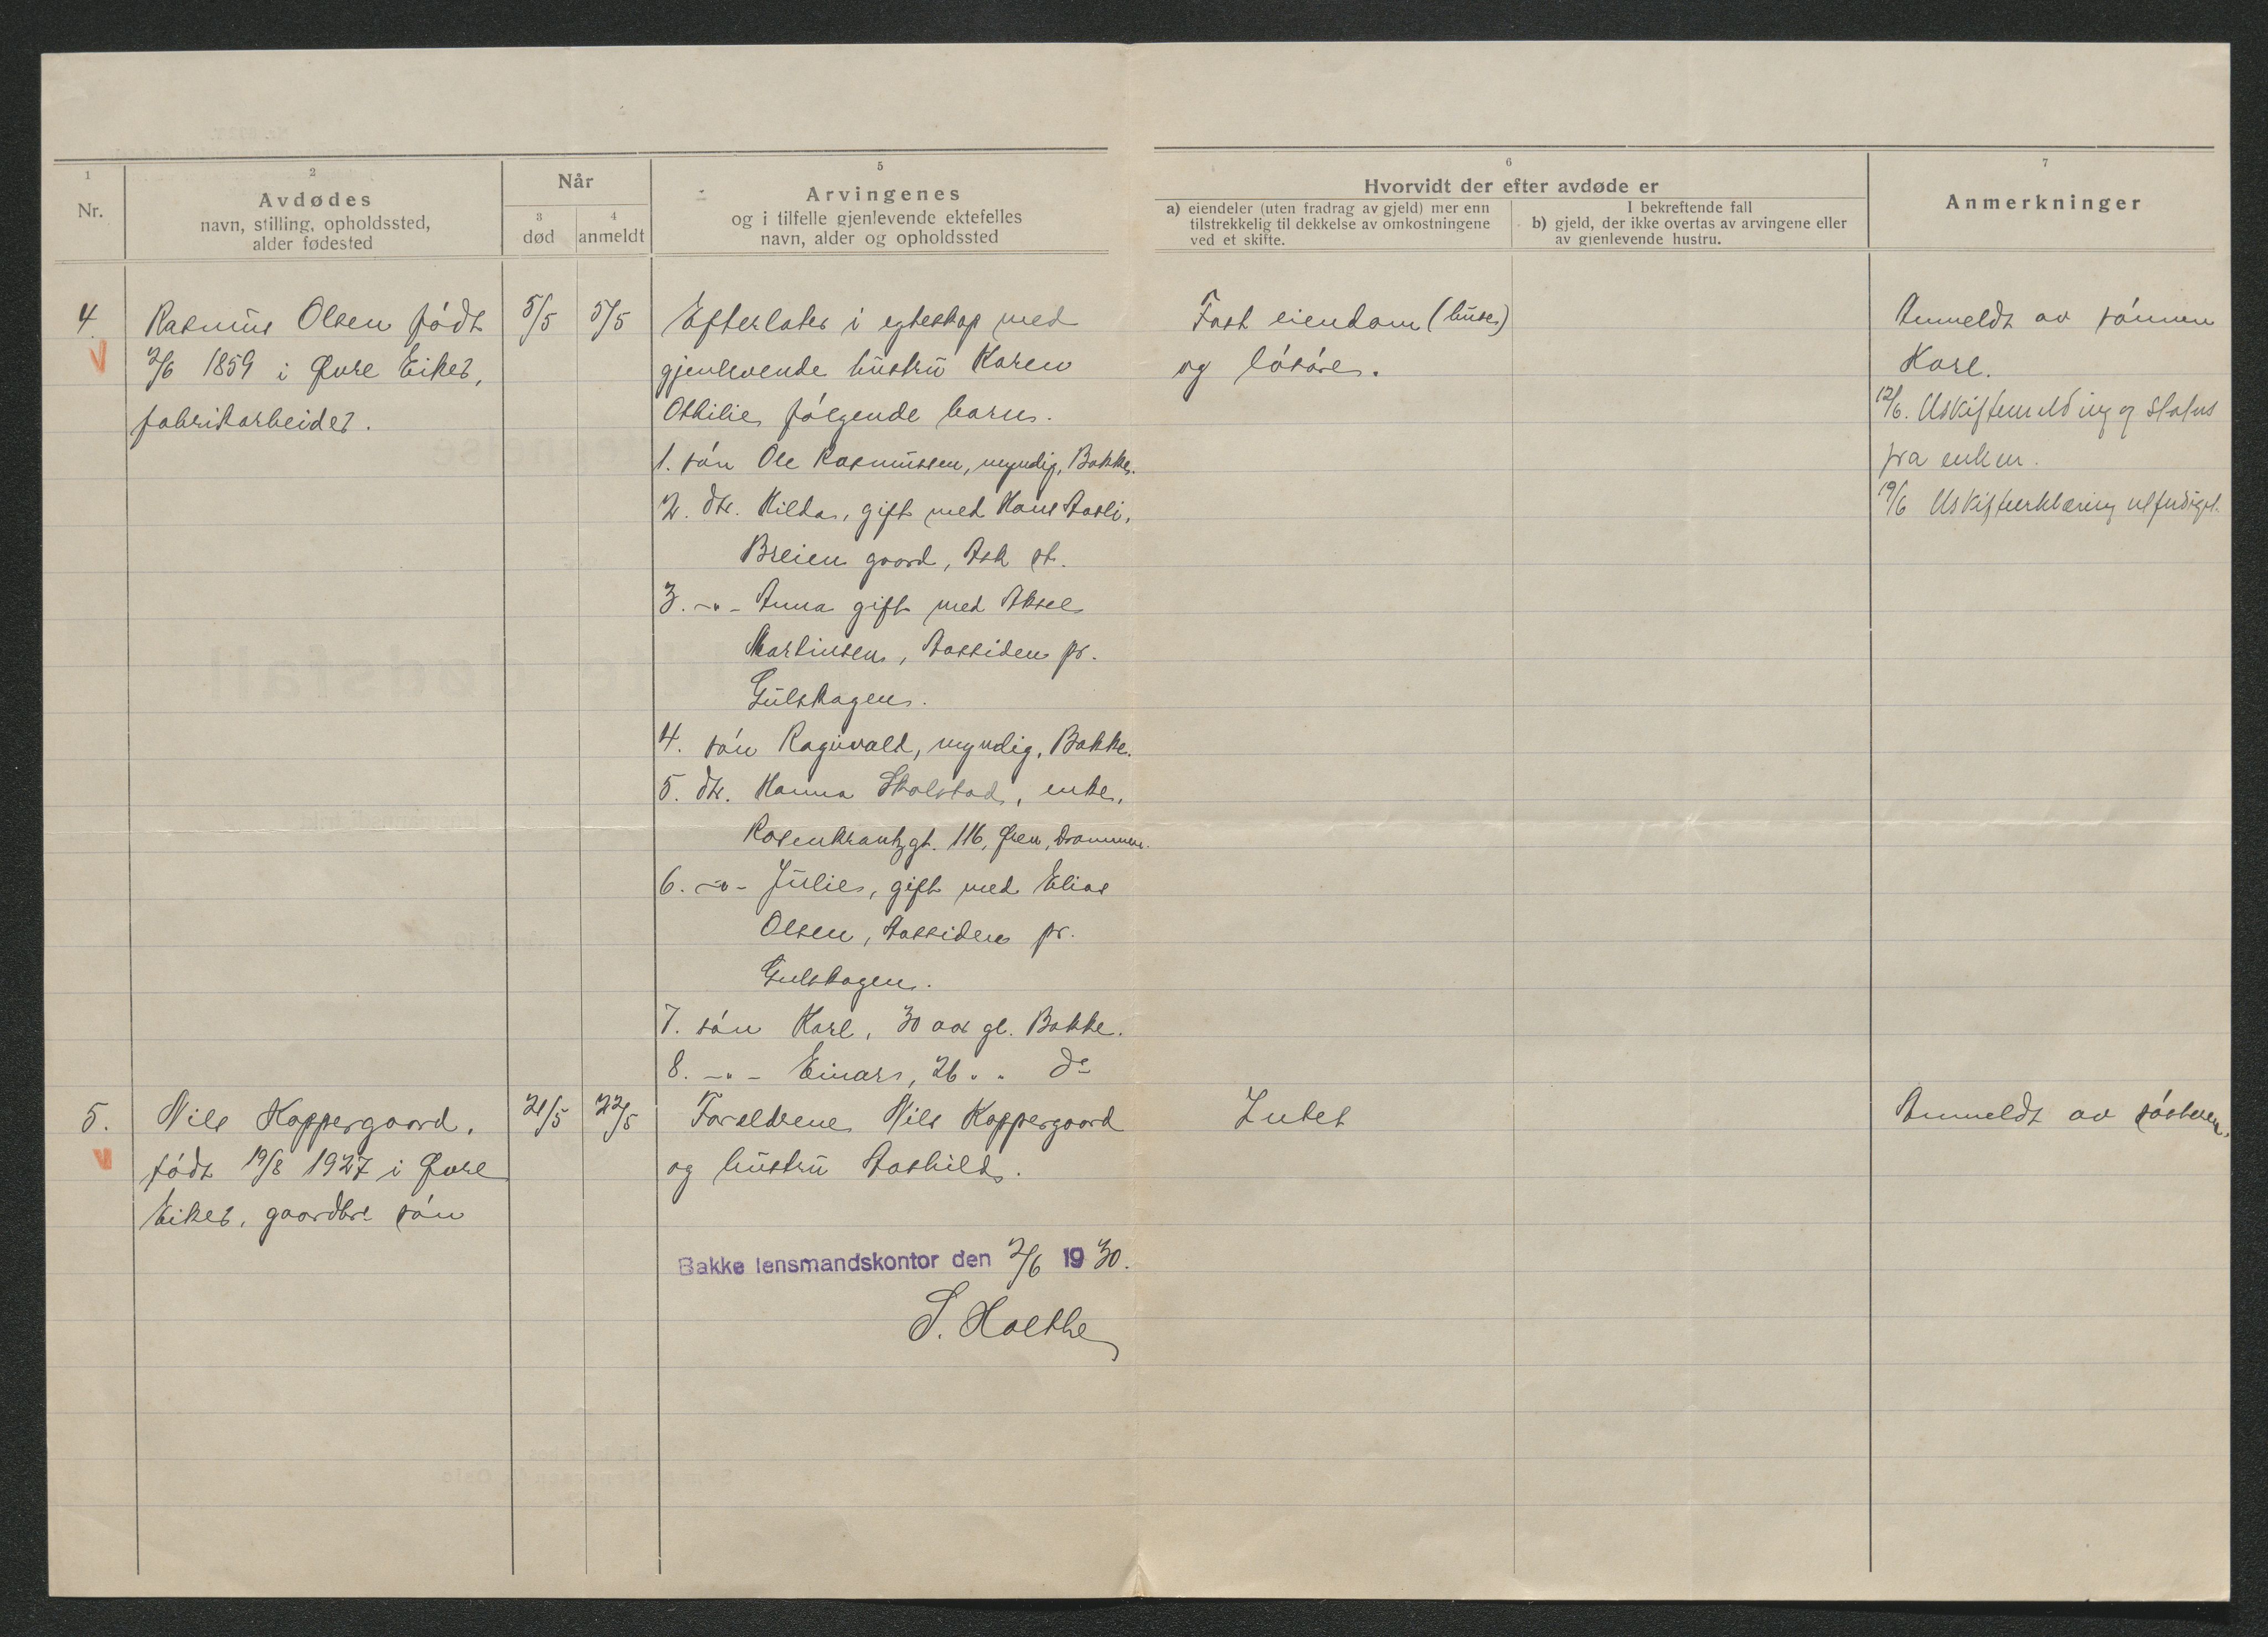 1
Nr.
2
Avdødes
navn, stilling, opholdssted,
alder fødested
Når
3
død
4
anmeldt
5
Arvingenes
og i tilfelle gjenlevende ektefelles
navn, alder og opholdssted
6
Hvorvidt der efter avdøde er
a) eiendeler (uten fradrag av gjeld) mer enn
tilstrekkelig til dekkelse av omkostningene
ved et skifte.
I bekreftende fall
b) gjeld, der ikke overtas av arvingene eller
av gjenlevende hustru.
7
Anmerkninger
4
Rasmus Olsen født
2/6 1859 i Øvre Eiker,
fabrikarbeider.
5/5
5/5
Efterlater i egteskap med
gjenlevende hustru Karen
Othilie følgende barn.
1. søn Ole Rasmussen, myndig, Bakke.
2. dtr. Hilda, gift med Hans Aasli,
Breien gaard, Ask st.
3. -"- Anna gift med Aksel
Martinsen, Aassiden pr.
Gulskogen.
4. søn Ragnvald, myndig, Bakke.
5. dtr. Hanna Skalstad, enke,
Rosenkrantzgt. 116, Øren, Drammen.
6. -"- Julie, gift med Elias
Olsen, Aassiden pr.
Gulskogen.
7. søn Karl, 30 aar gl. Bakke.
8. -"- Einar, 26 " " do
Fast eiendom (huse)
og løsøre.
Anmeldt av sønnen
Karl.
12/6. Uskiftemelding og status
fra enken.
19/6 Uskifteerklæring utferdiget.
5.
Nils Hoppergaard,
født 19/8 1927 i Øvre
Eiker, gaardbr. søn
21/5
22/5
Forældrene Nils Koppergaard
og hustru Aashild.
Intet
Anmeldt av søsteren.
Bakke lensmandskontor den 2/6 1930.
S. Holthe